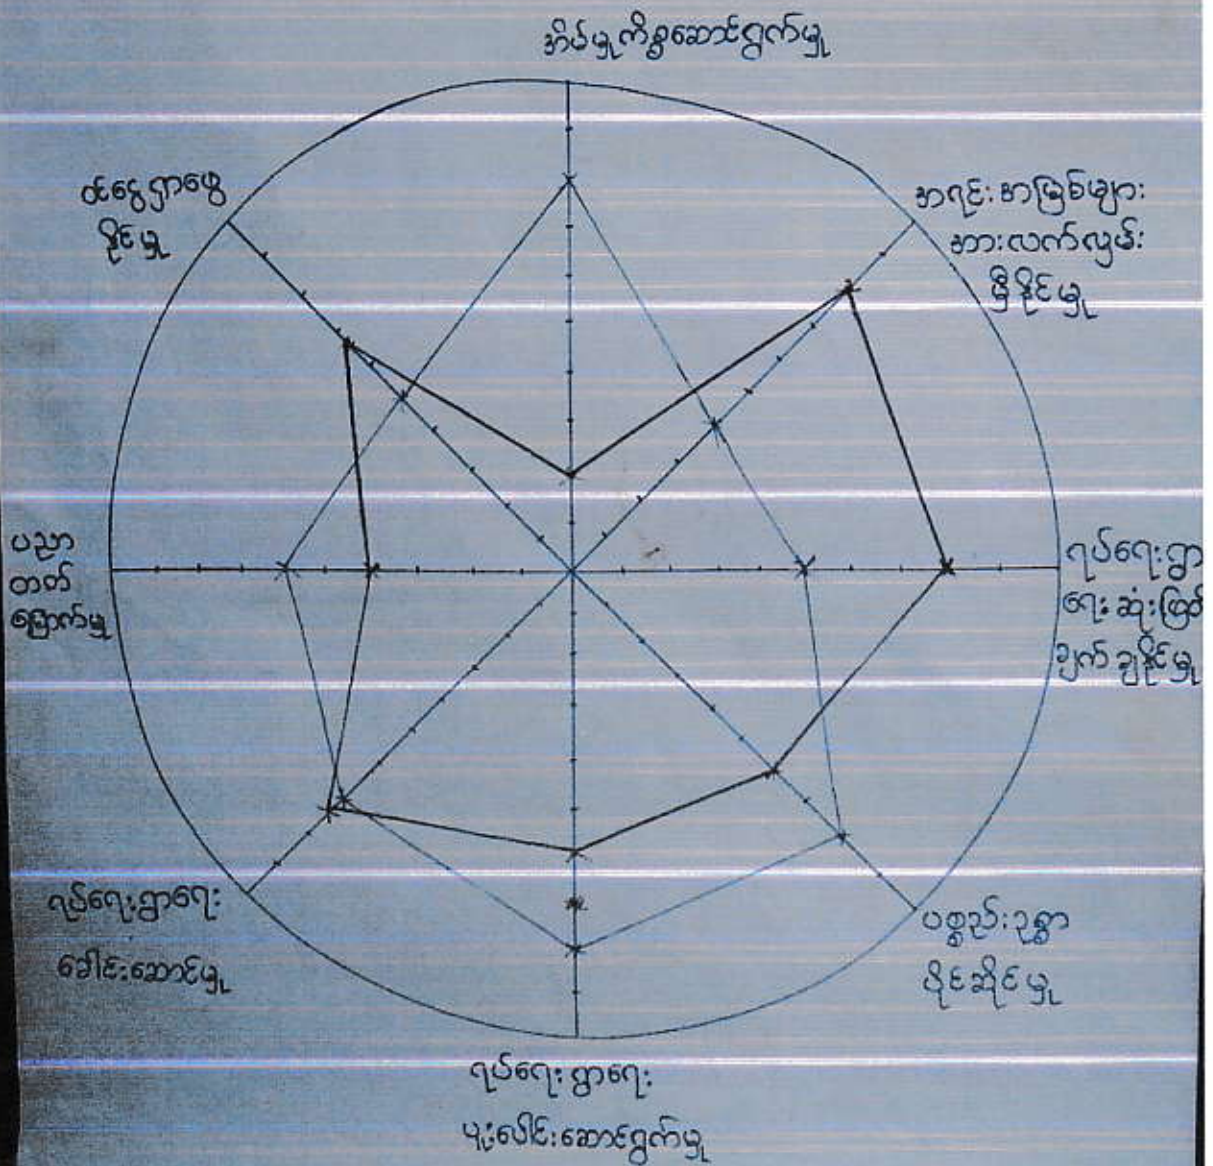 အိမ်မှုကိစ္စဆောင်ရွက်မှု
အရင်းအမြစ်များ
အားလက်လှမ်း
မှီနိုင်မှု
ရပ်ရေးရွာ
ရေးဆုံးဖြတ်
ချက်ချနိုင်မှု
ပစ္စည်းဥစ္စာ
ပိုင်ဆိုင်မှု
ရပ်ရေးရွာရေး
ပူးပေါင်းဆောင်ရွက်မှု
ရပ်ရေးရွာရေး
ခေါင်းဆောင်မှု
ပညာ
တတ်
မြောက်မှု
ဝင်ငွေရှာဖွေ
နိုင်မှု